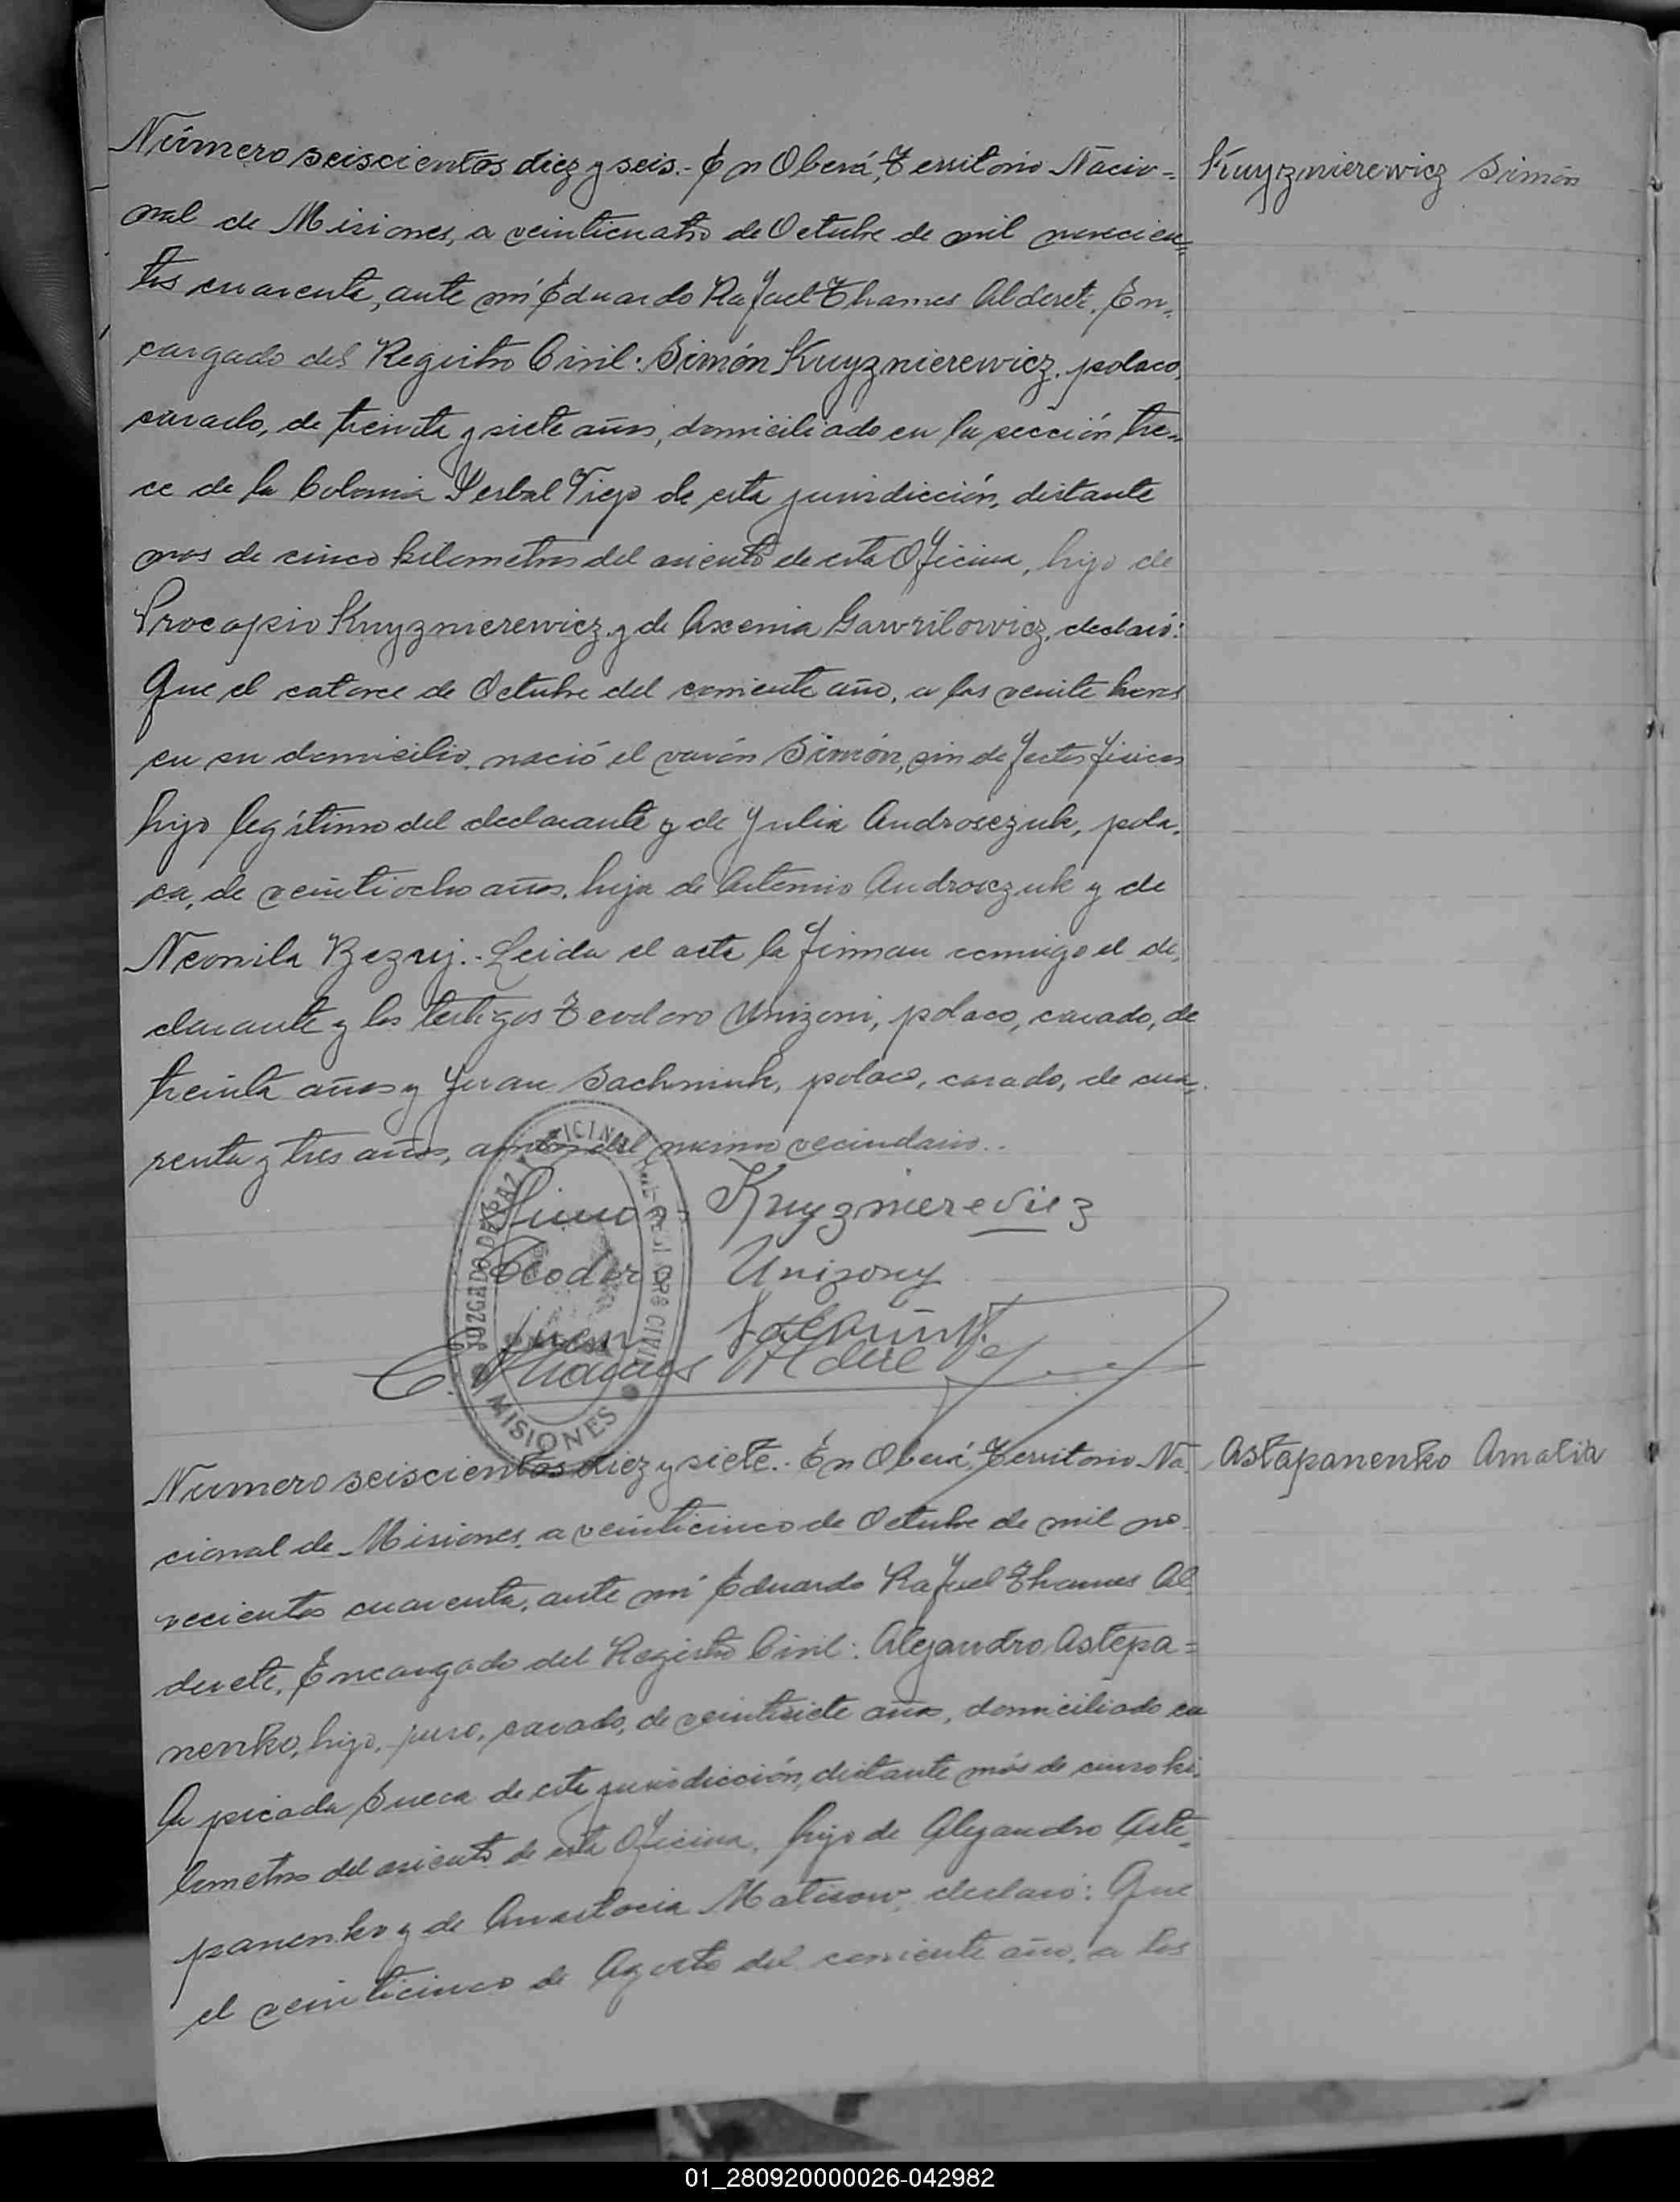 Número seiscientos diez y seis.- En Oberá, Territorio Nacio=
nal de Misiones, a veinticuatro de Octubre de mil novecien=
tos cuarenta, ante mí Eduardo Rafael Thames Alderete, En=
cargado del Registro Civil: Simón Kuyznierewicz, polaco,
casado, de treinta y siete años, domiciliado en la sección tre=
ce de la Colonia Yerbal Viejo de esta jurisdicción, distante
mas de cinco kilometros del asiento de esta Oficina, hijo de
Procopio Kuyznierewicz y de Axenia Gawrilowicz, declaró:
Que el catorce de Octubre del corriente año, a las veinte horas
en su domicilio, nació el varón Simón, sin defectos físicos
hijo legítimo del declarante y de Julia Androsczuk, pola=
ca, de veintiocho años, hija de Artemio Androsczuk y de
Neonila Bezruj.- Leida el acta la firman conmigo el de=
clarante y los testigos Teodoro Unizoni, polaco, casado, de
treinta años y Juan Sachniuk, polaco, casado, de cua=
renta y tres años, ambos del mismo vecindario.-
Simon Kuyznierewiez
Teodor Unizony
Juan
E. Thames Alderete
JUZGADO DE PAZ OFICINA REG. CIVIL
MISIONES
Kuyznierewicz Simón
Numero seiscientos diez y siete.- En Oberá, Territorio Na=
cional de Misiones, a veinticinco de Octubre de mil no=
vecientos cuarenta, ante mí Eduardo Rafael Thames Al=
derete, Encargado del Registro Civil: Alejandro Astepa=
nenko, hijo, ruso, casado, de veintisiete años, domiciliado en
la picada Sueca de esta jurisdicción, distante más de cinco ki=
lometros del asiento de esta Oficina, hijo de Alejandro Aste=
panenko y de Anastacia Matisow, declaró: Que
el veinticinco de Agosto del corriente año, a las
Astapanenko Amalia
01_280920000026-042982